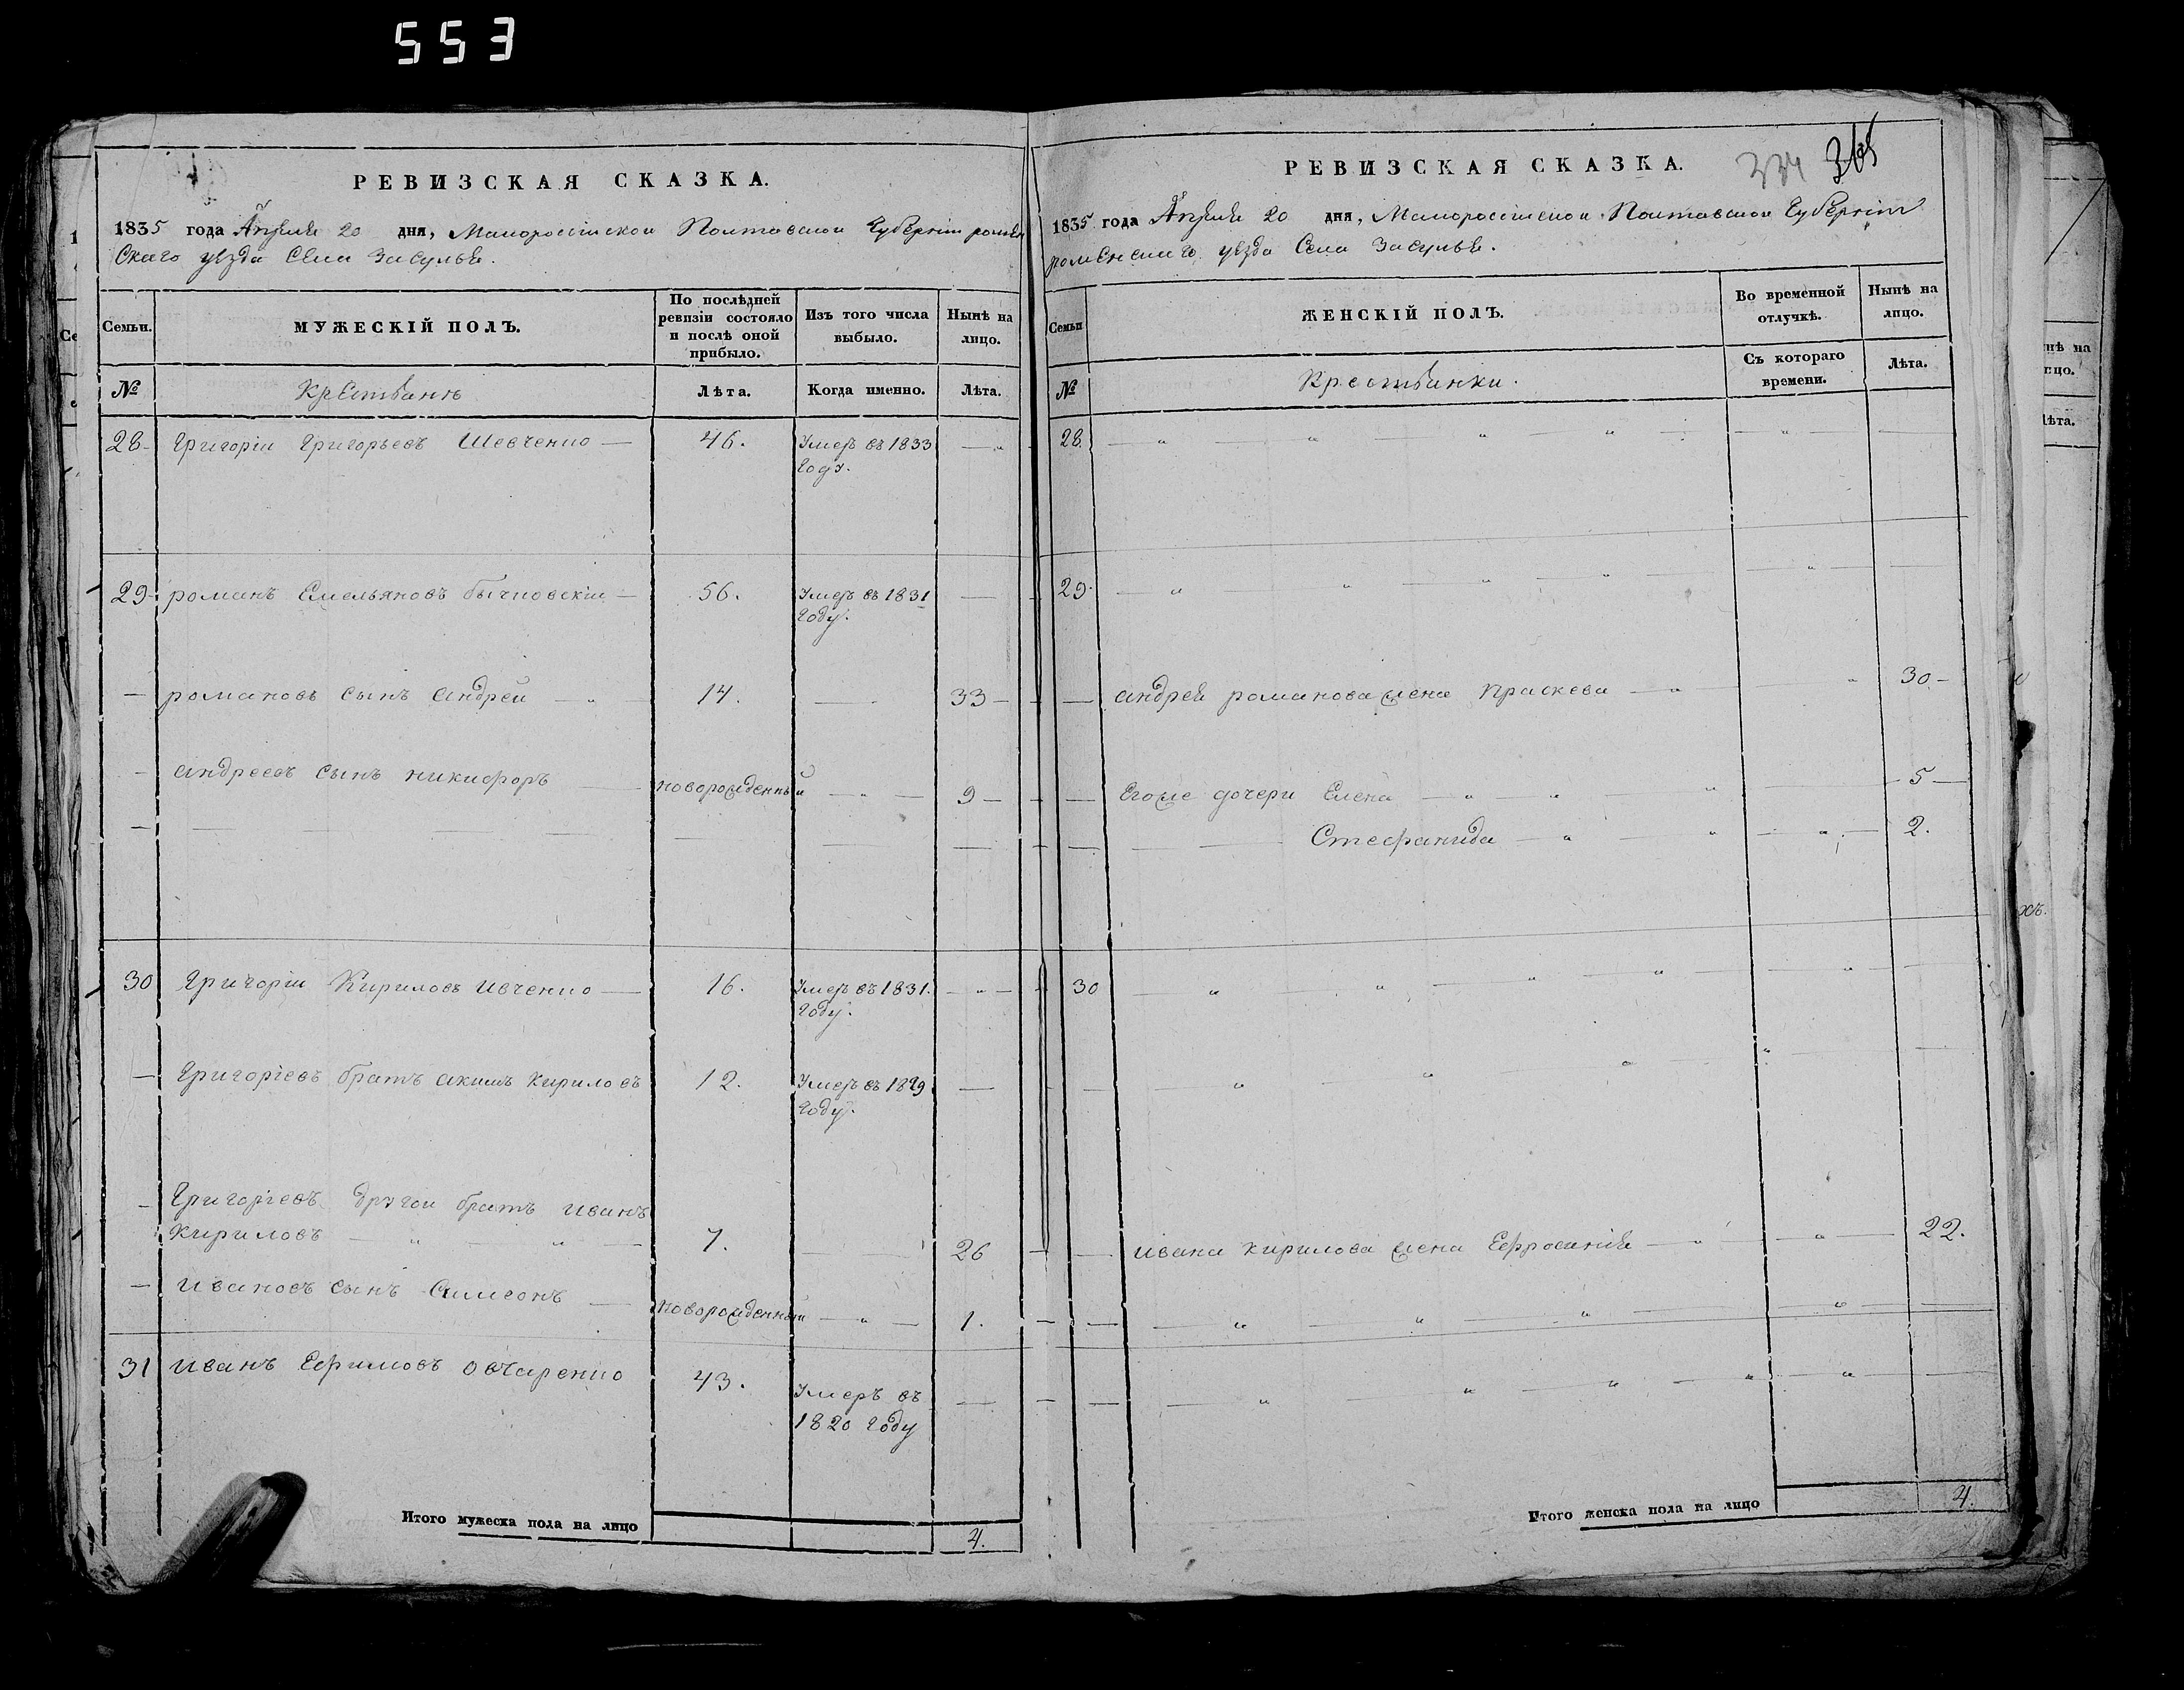 553
РЕВИЗСКАЯ СКАЗКА.
1835 года Апреля 20 дня, Малоросійской Полтавской Губерніи ромен
Скаго уѣзда Села Засулья.
Семьи.
МУЖЕСКІЙ ПОЛЪ.
По послѣдней
ревизіи состояло
и послѣ оной
прибыло.
Изъ того числа
выбыло.
Нынѣ на
лицо.
№
Крестьянъ
Лѣта.
Когда именно.
Лѣта.
28 Григоріи Григорьевъ Шевченко 46. Умеръ въ 1833
Году.
29 романъ Емельяновъ бычковскіи 56. Умеръ въ 1831
Году.
романовъ сынъ андрей 14. 33
андреевъ сынъ никифоръ новорожденный 9
30 Григоріи Кириловъ ивченко 16. Умеръ въ 1831.
Году.
Григоріевъ братъ акимъ кириловъ 12. Умеръ въ 1829
Году.
Григоріевъ другои братъ иванъ
кириловъ 7. 26
ивановъ сынъ Симеонъ новорожденный 1.
31 иванъ Ефимовъ овчаренко 43. Умеръ въ
1820 Году
Итого мужеска пола на лицо 4.
РЕВИЗСКАЯ СКАЗКА. 334 365
1835 года Апреля 20 дня, Малоросійской Полтавской Губерніи
роменскаго уѣзда Села Засулья.
Семьи
ЖЕНСКІЙ ПОЛЪ.
Во временной
отлучкѣ.
Нынѣ на
лицо.
№
Крестьянки.
Съ котораго
времени.
Лѣта.
28.
29.
андрея романова жена праскева 30
Егоже дочери Елена 5
Стефанида 2.
30
ивана кирилова жена Ефросинія 22.
Итого женска пола на лицо 4.